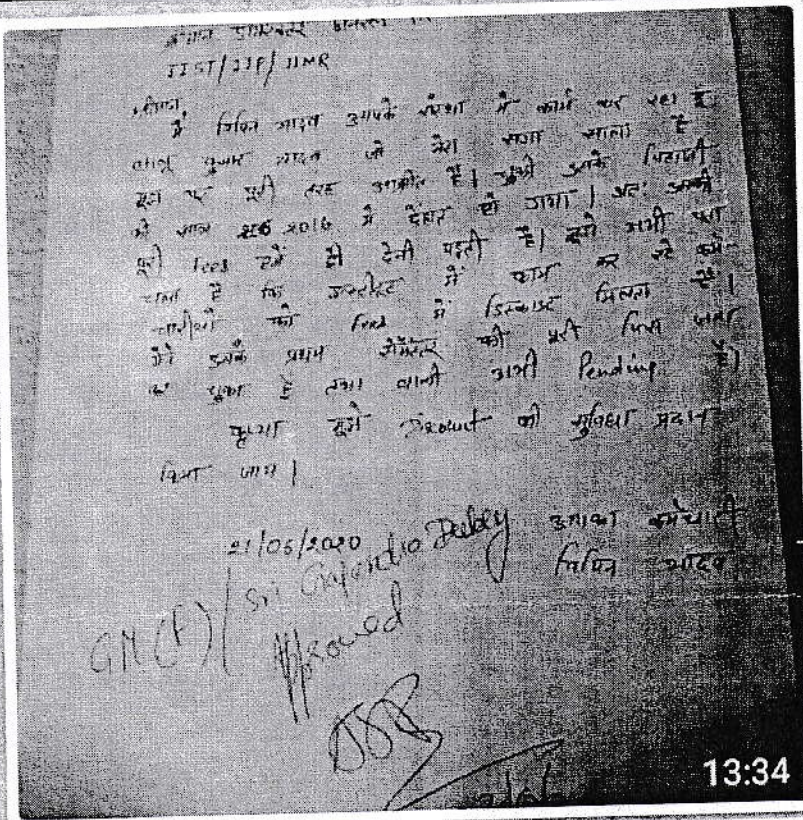 IIST/IIP/IIMR
श्रीमान
मैं विपिन यादव आपके संस्था में कार्य कर रहा हूँ
कुमार यादव जो मेरा सगा साला है
पूरी तरह आश्रित है। उनके पिताजी
2016 में देहांत हो गया। अतः
पूरी fees हमें ही देनी पड़ती है। मुझे अभी पता
चला है कि इंस्टीट्यूट में काम कर रहे कर्म-
चारीयों को fees में डिस्काउंट मिलता है।
मैंने इसके प्रथम सेमेस्टर की पूरी फीस जमा
कर चुका है तथा बाकी अभी Pending है।
कृप्या मुझे की सुविधा प्रदान
किया जाय।
21/05/2020 आपका कर्मचारी
विपिन यादव
GM(F)/ Sri Gajendra Dubey
Approved
13:34